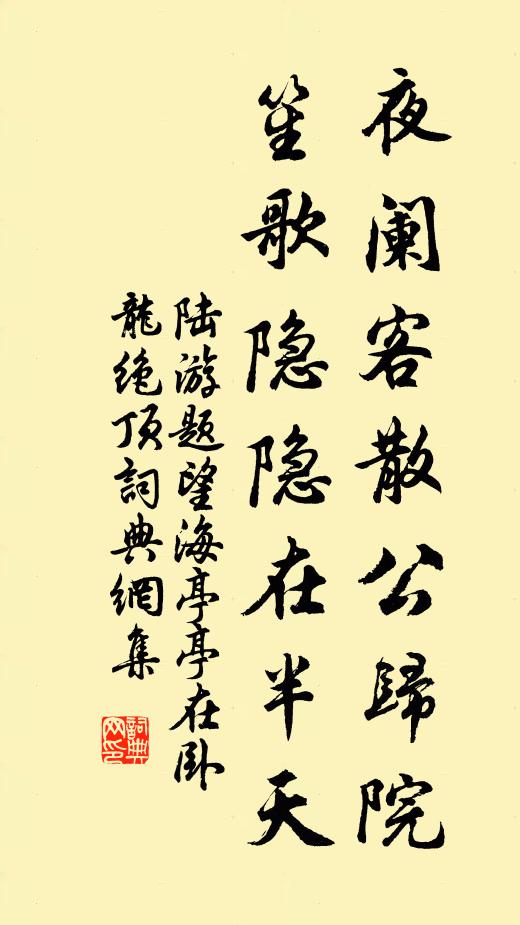 夜阑客散公歸院
笙歌隐隐在半天
陆游題望海亭亭在卧
龍绝頂詞典網集
詞典
网印